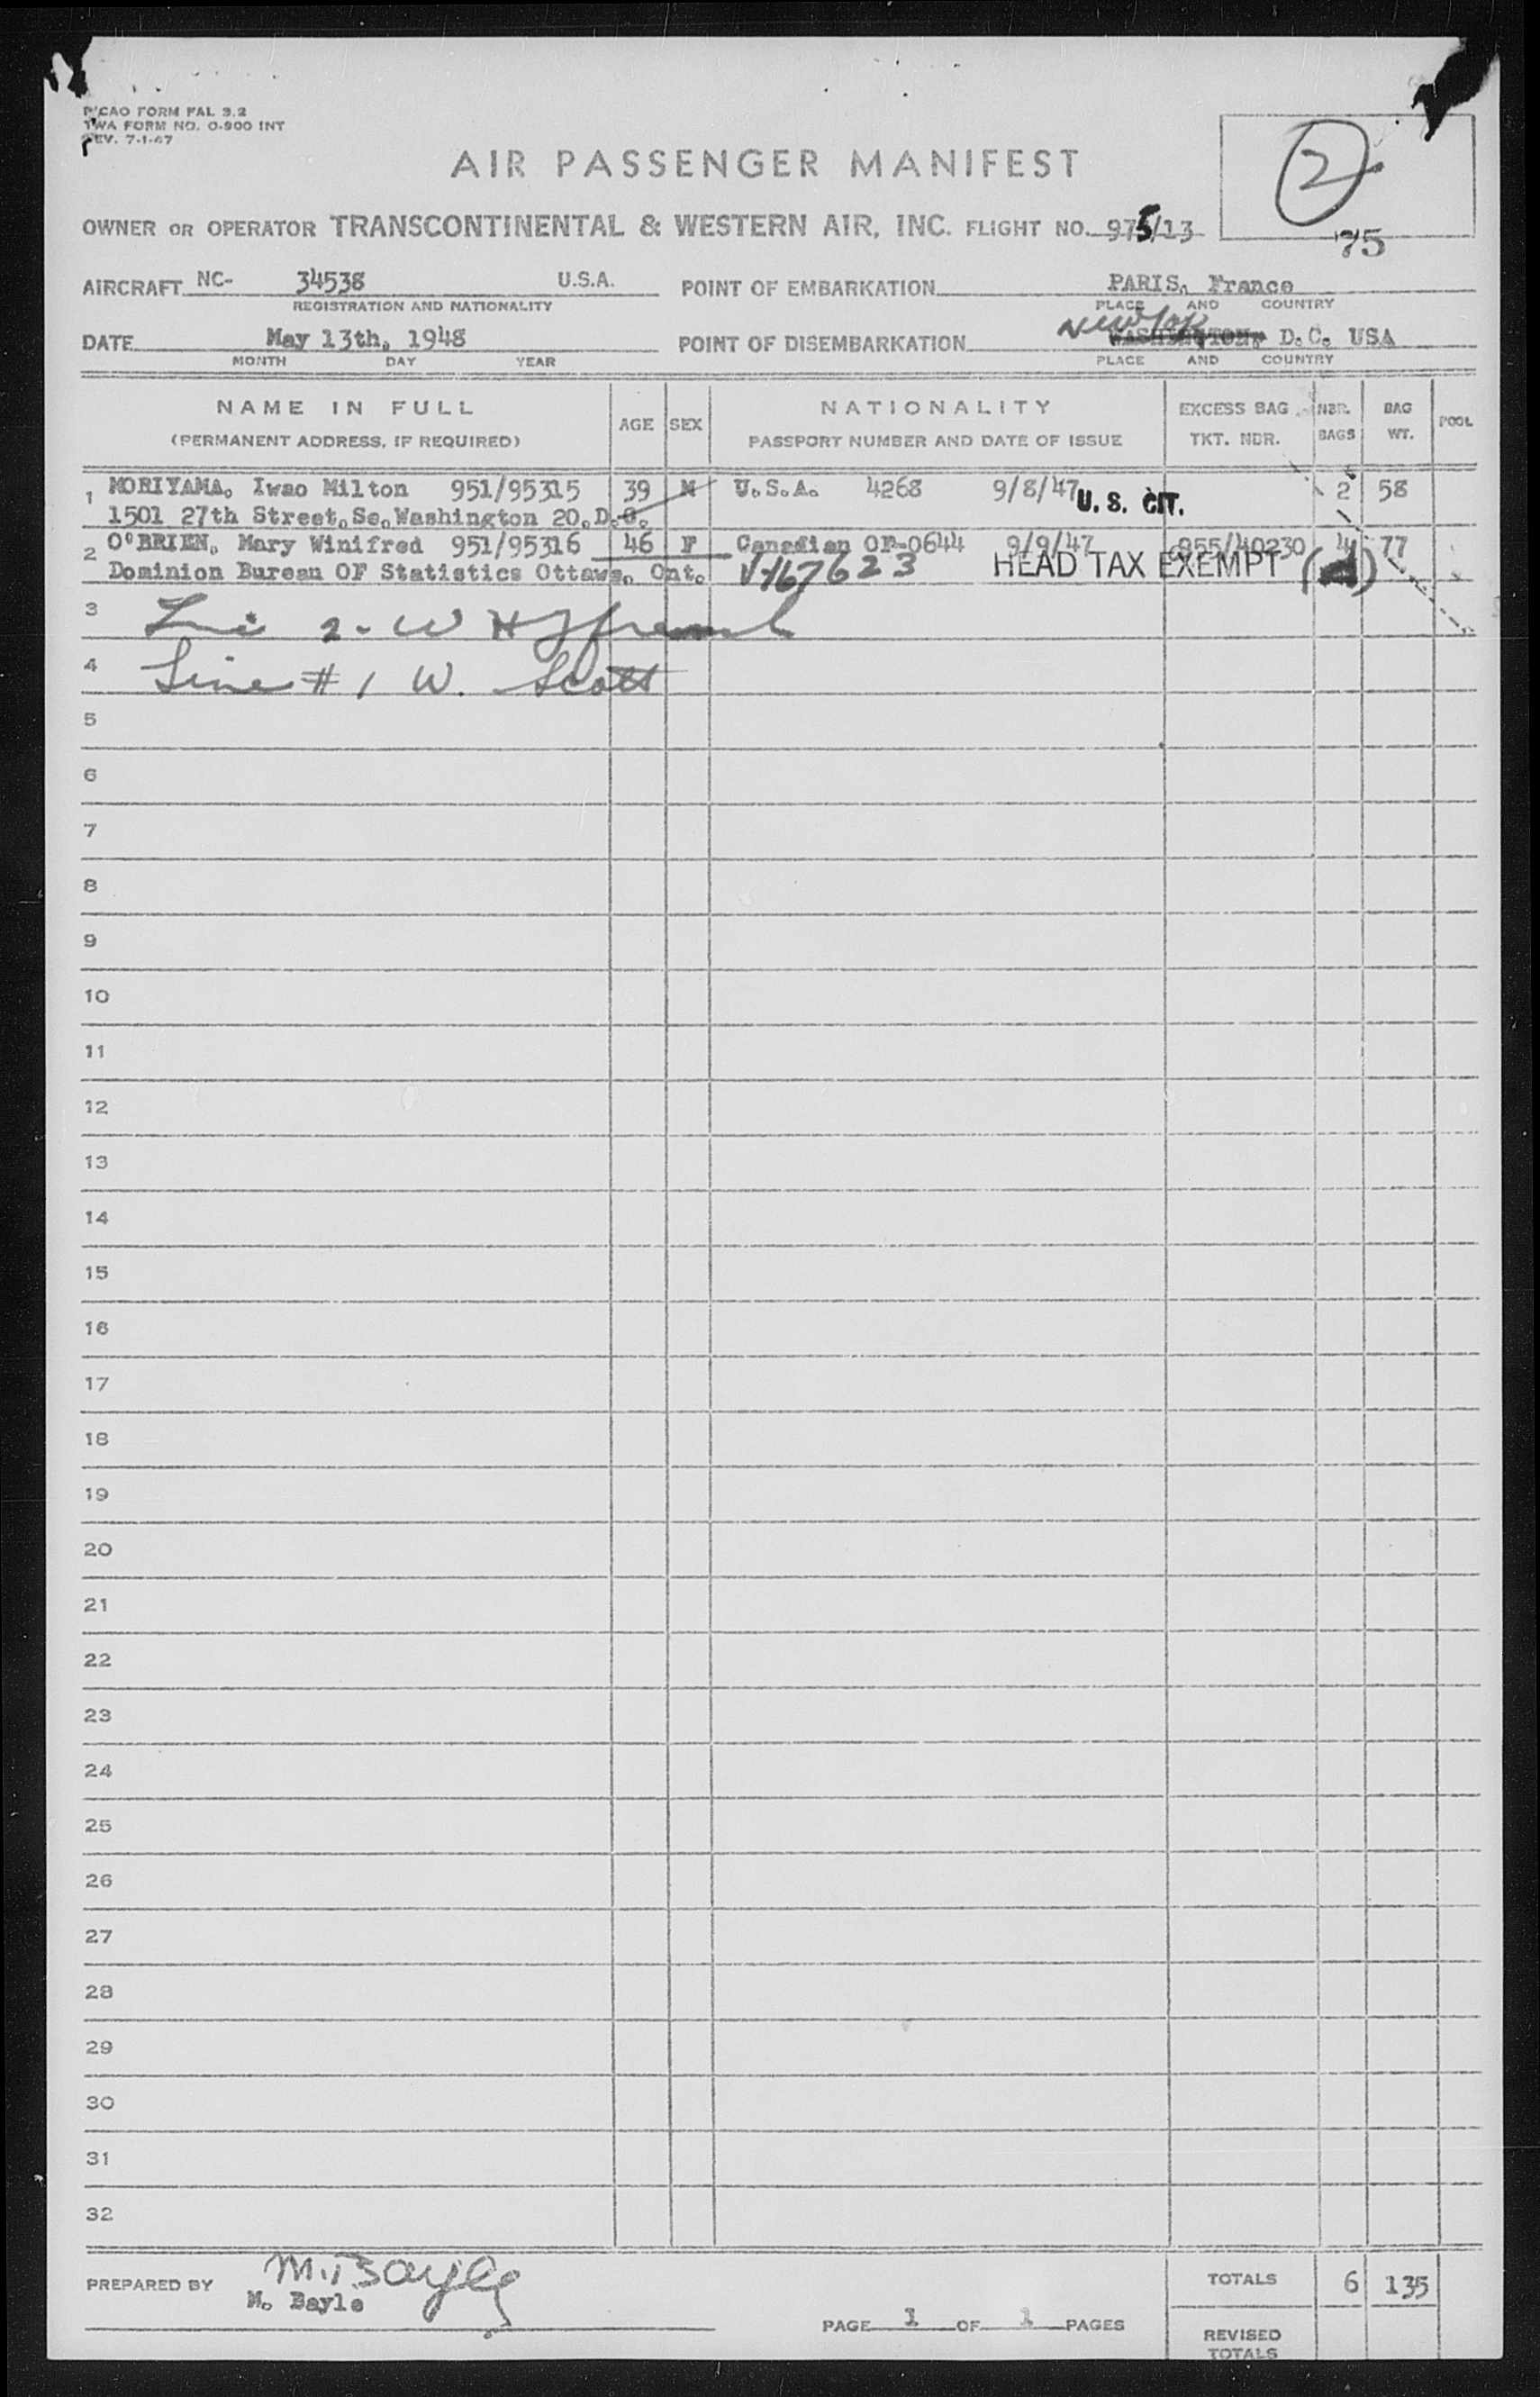 PICAO FORM FAL 3.2
TWA FORM NO. O-900 INT
REV. 7-1-47
AIR PASSENGER MANIFEST
2
OWNER OR OPERATOR TRANSCONTINENTAL & WESTERN AIR, INC. FLIGHT NO. 975/13
75
AIRCRAFT NC- 34538 U.S.A. POINT OF EMBARKATION PARIS, France
REGISTRATION AND NATIONALITY PLACE AND COUNTRY
New York
DATE May 13th, 1948 POINT OF DISEMBARKATION WASHINGTON, D.C. USA
MONTH DAY YEAR PLACE AND COUNTRY
NAME IN FULL AGE SEX NATIONALITY EXCESS BAG NBR. BAG POOL
(PERMANENT ADDRESS, IF REQUIRED) PASSPORT NUMBER AND DATE OF ISSUE TKT. NBR. BAGS WT.
1 MORIYAMA, Iwao Milton 951/95315 39 M U.S.A. 4268 9/8/47 U.S. CIT. 2 58
1501 27th Street, Se, Washington 20, D.C.
2 O'BRIEN, Mary Winifred 951/95316 46 F Canadian OF-0644 9/9/47 955/40230 4 77
Dominion Bureau OF Statistics Ottawa, Ont. V-167623 HEAD TAX EXEMPT
3 2 - W H
4 Line # 1 W. Scott
5
6
7
8
9
10
11
12
13
14
15
16
17
18
19
20
21
22
23
24
25
26
27
28
29
30
31
32
PREPARED BY M. Bayle TOTALS 6 135
M. Bayle
PAGE 1 OF 1 PAGES
REVISED
TOTALS